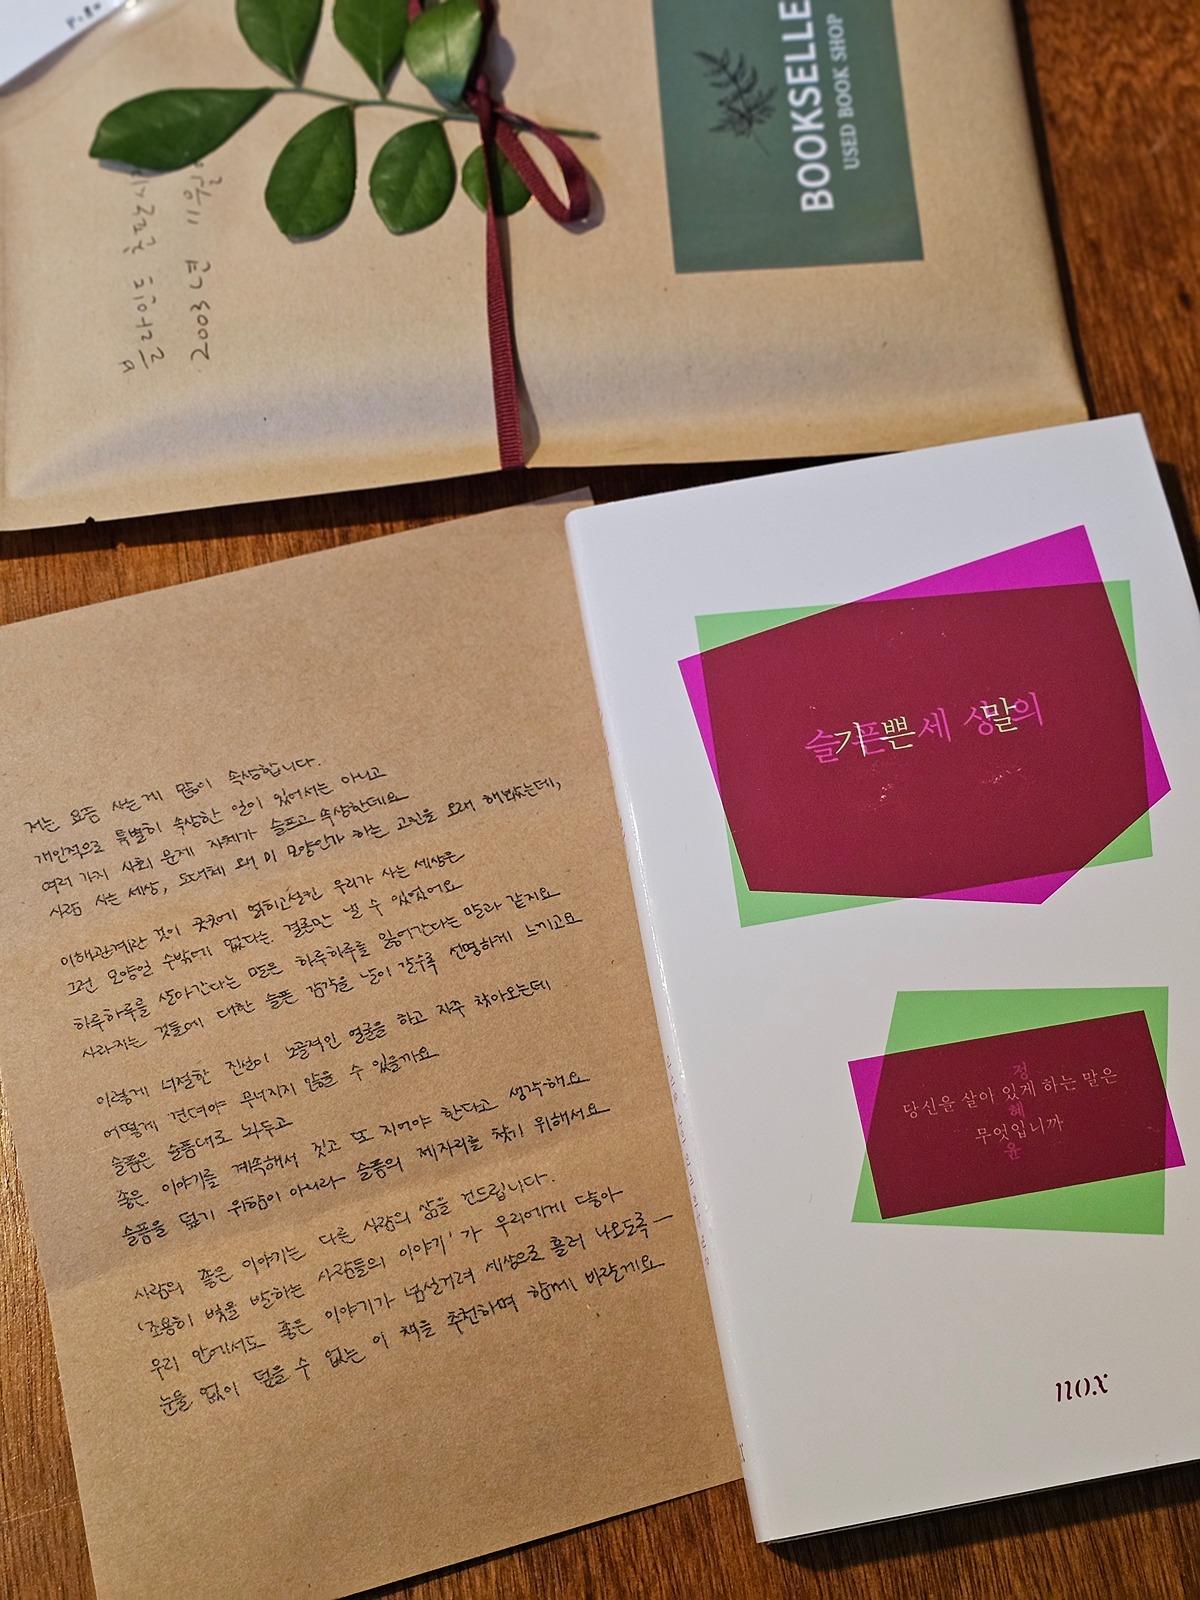 BOOKSELLE
USED BOOK SHOP
2003년 11월
저는 요즘 사는게 많이 속상합니다.
개인적으로 특별히 속상한 일이 있어서는 아니고
여러 가지 사회 문제 자체가 슬프고 속상한데요
사람 사는 세상, 도대체 왜 이 모양인가 하는 고민을 오래 해봤는데,
이해관계란 것이 곳곳에 얽히고설킨 우리가 사는 세상은
그런 모양일 수밖에 없다는 결론만 낼 수 있었어요
하루하루를 살아간다는 말은 하루하루를 잃어간다는 말과 같지요
사라지는 것들에 대한 슬픈 감각을 날이 갈수록 선명하게 느끼고요
이렇게 너절한 진실이 노골적인 얼굴을 하고 자꾸 찾아오는데
어떻게 견뎌야 무너지지 않을 수 있을까요
슬픔은 슬픔대로 놔두고
좋은 이야기를 계속해서 짓고 또 지어야 한다고 생각해요
슬픔을 덮기 위함이 아니라 슬픔의 제자리를 찾기 위해서요
사람의 좋은 이야기는 다른 사람의 삶을 건드립니다.
'조용히 빛을 발하는 사람들의 이야기'가 우리에게 닿아
우리 안에서도 좋은 이야기가 넘실거려 세상으로 흘러 나오도록—
눈물 없이 덮을 수 없는 이 책을 추천하며 함께 바랄게요
슬픈 세상의
기쁜 말
정혜윤
당신을 살아 있게 하는 말은
무엇입니까
nox